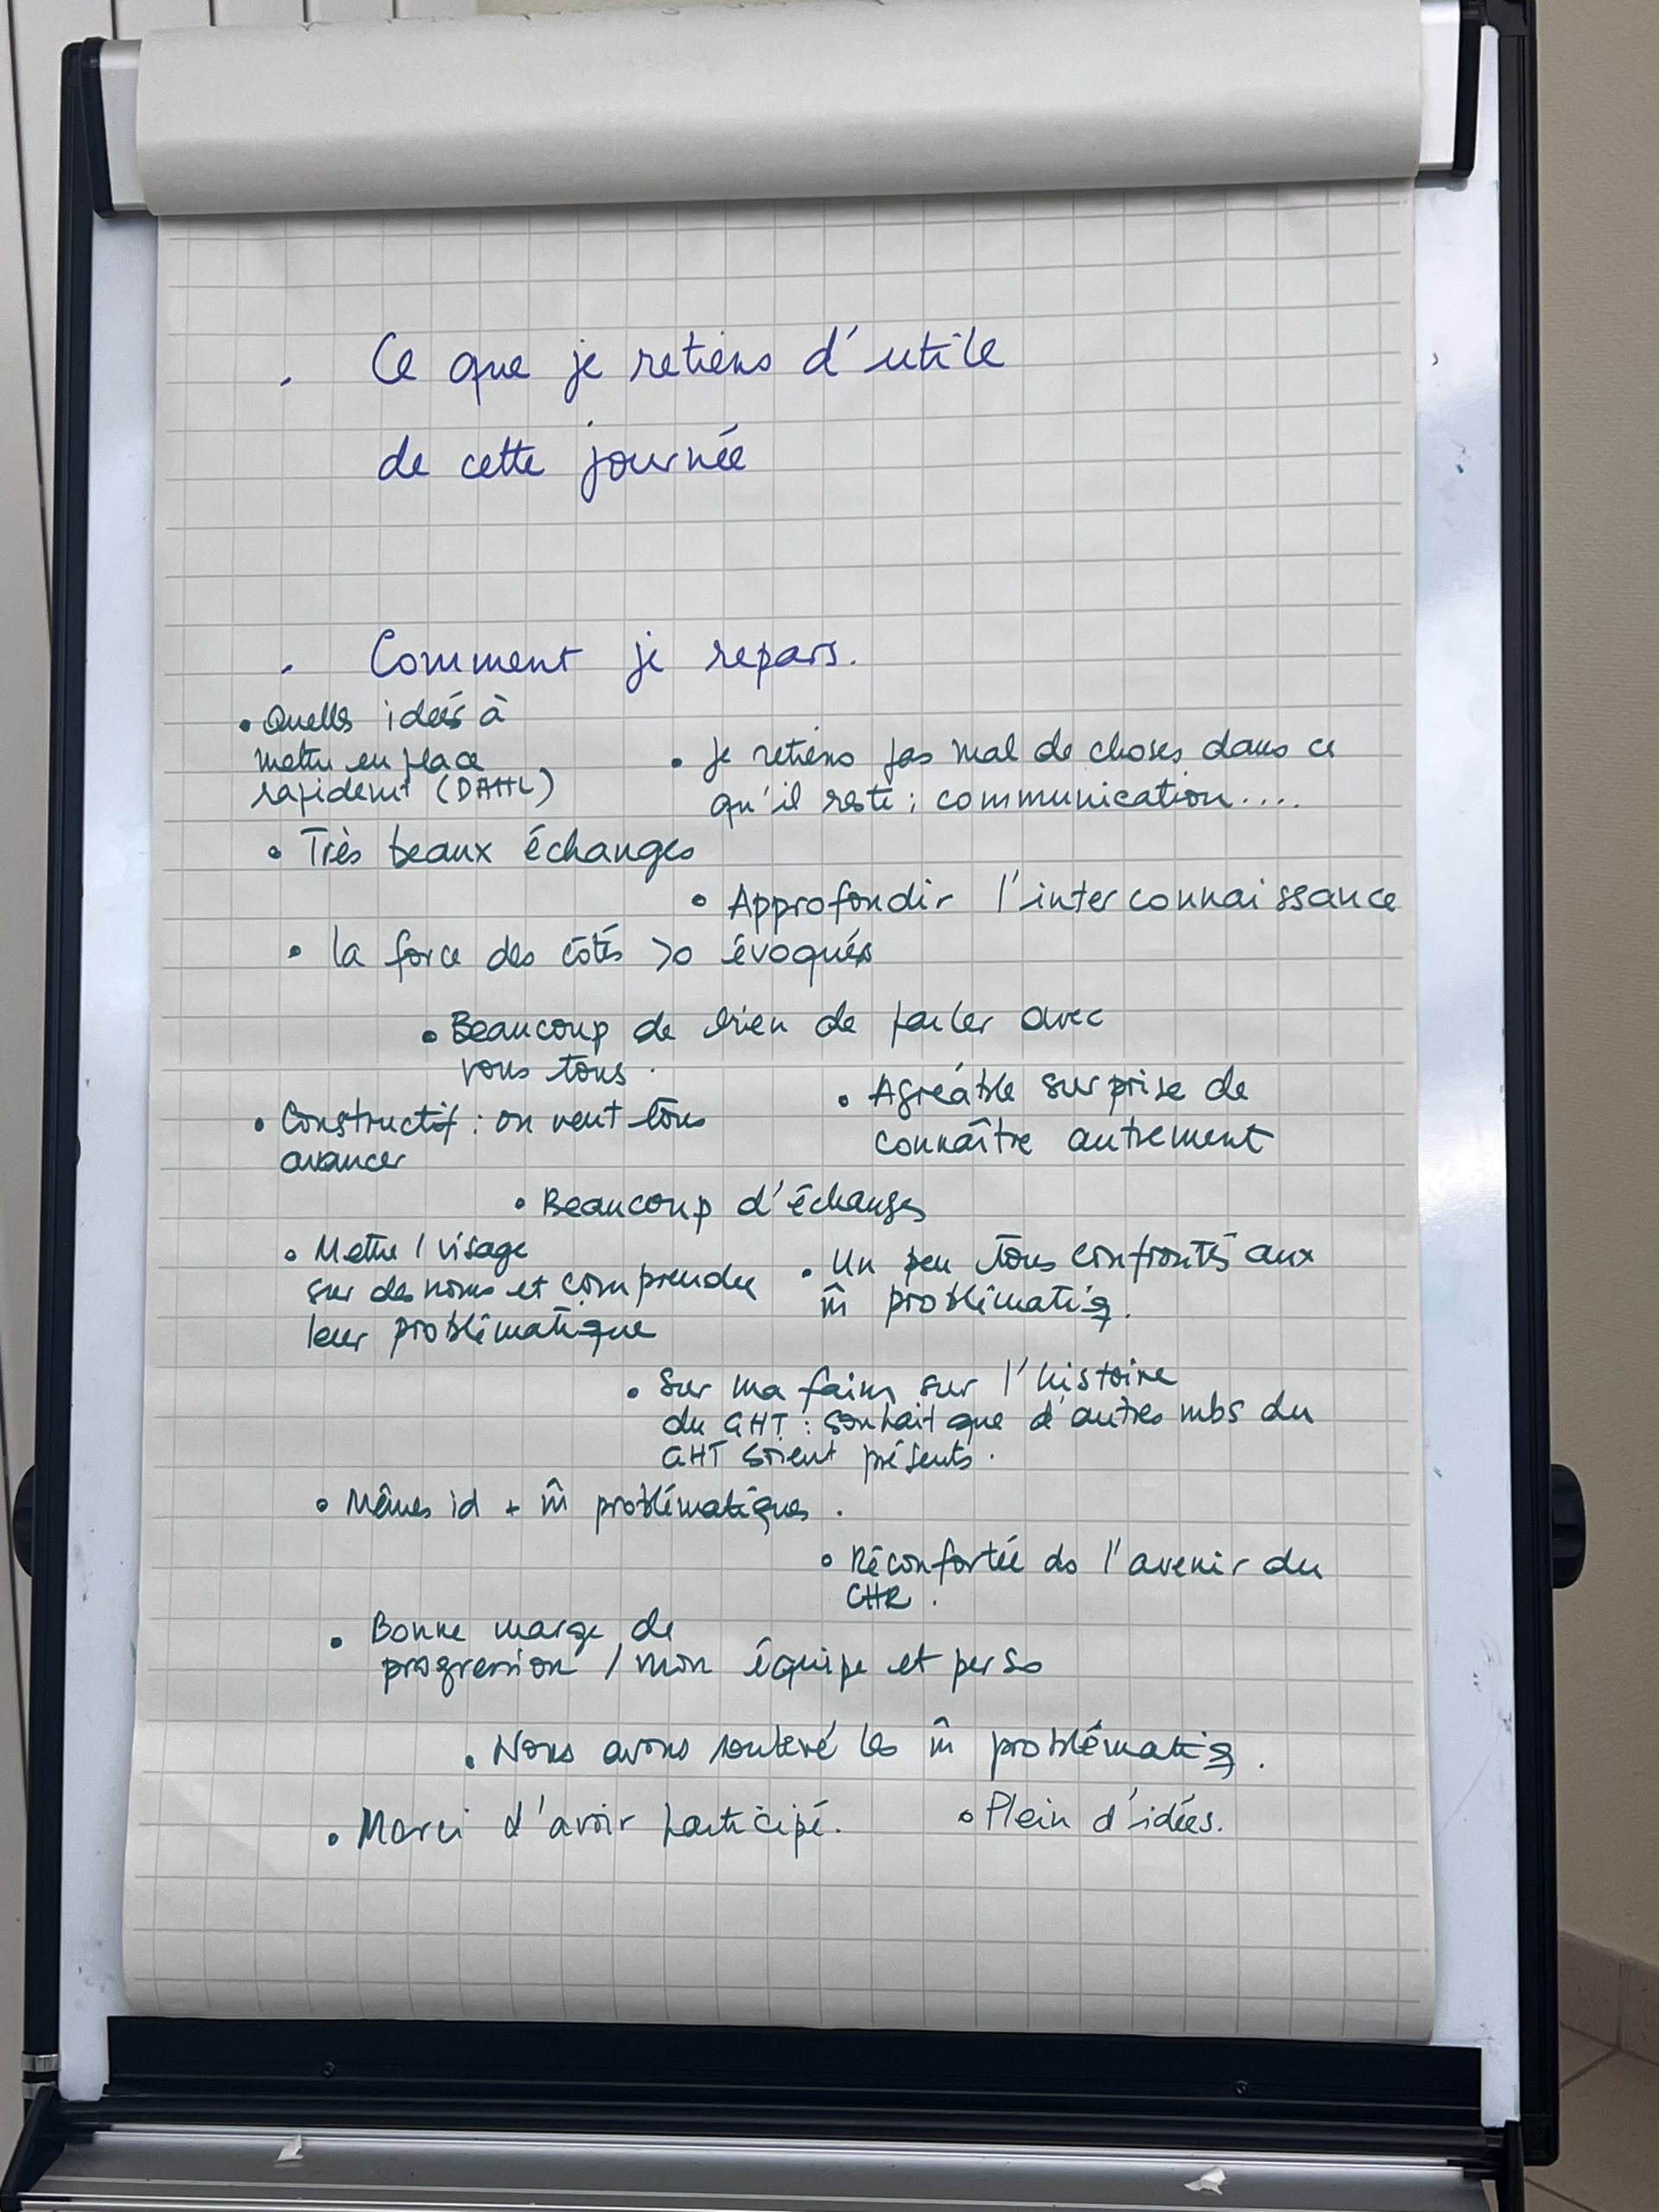 . Ce que je retiens d'utile
de cette journée
. Comment je repars.
• Quelles idées à
mettre en place
rapidemt (DAHL)
• je retiens pas mal de choses dans ce
qu'il reste : communication....
• Très beaux échanges
• Approfondir l'interconnaissance
• la force des côtés >0 évoqués
• Beaucoup de bien de parler avec
vous tous.
• Agréable surprise de
connaître autrement
• Constructif : on veut tous
avancer
• Beaucoup d'échanges
• Mettre 1 visage
sur des noms et comprendre
leur problématique
• Un peu tous confrontés aux
m̂ problématiq.
• Sur ma faim sur l'histoire
du GHT : souhait que d'autres mbs du
GHT soient présents.
• Mêmes id + m̂ problématiques.
• Réconfortée ds l'avenir du
CHR.
• Bonne marge de
progression / mon équipe et perso
• Nous avons soulevé les m̂ problématiq.
• Merci d'avoir participé.
• Plein d'idées.